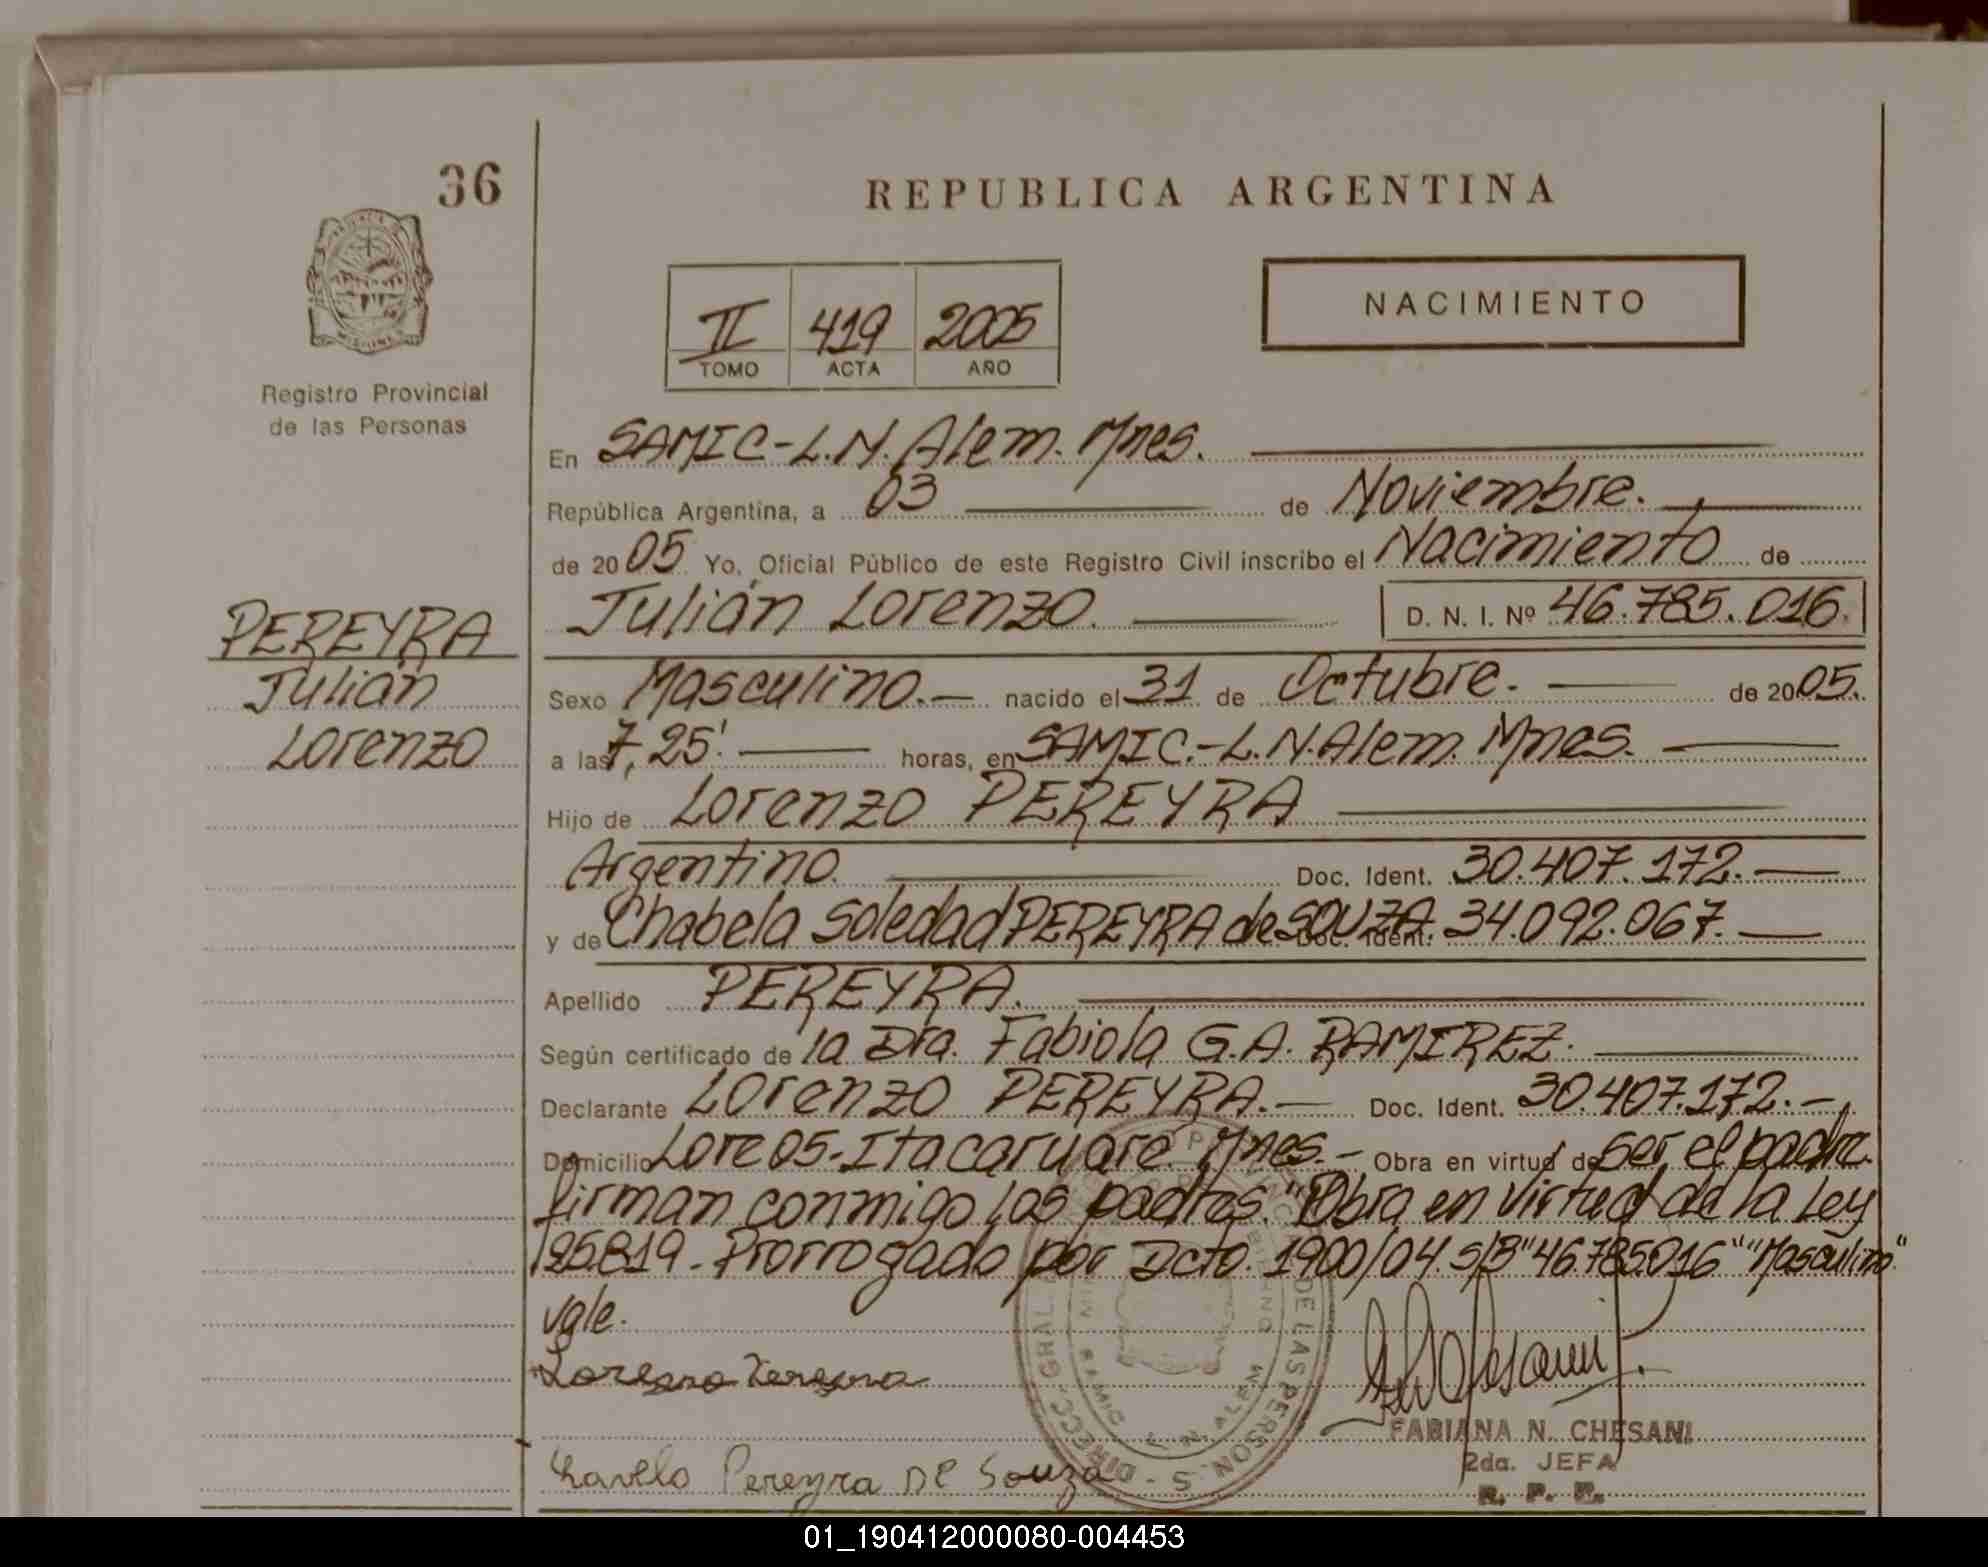 36
REPUBLICA ARGENTINA
NACIMIENTO
II 419 2005
TOMO ACTA AÑO
Registro Provincial
de las Personas
En SAMIC-L.N.Alem. Mnes.
República Argentina, a 03 de Noviembre.
de 2005 Yo, Oficial Público de este Registro Civil inscribo el Nacimiento de
Julián Lorenzo. D. N. I. Nº 46.785.016.
PEREYRA
Julián
Lorenzo
Sexo Masculino.- nacido el 31 de Octubre. de 2005.
a las 7,25'. horas, en SAMIC.-L.N.Alem. Mnes.
Hijo de Lorenzo PEREYRA
Argentino. Doc. Ident. 30.407.172.
y de Chabela Soledad PEREYRA de SOUZA Doc. Ident. 34.092.067.
Apellido PEREYRA.
Según certificado de la Dra. Fabiola G.A. RAMIREZ.
Declarante LORENZO PEREYRA.- Doc. Ident. 30.407.172.-
Domicilio Lote 05-Itacaruaré Mnes.- Obra en virtud de ser el padre.
firman conmigo los padres. "Obra en virtud de la Ley
25819.-Prorrogado por Dcto. 1900/04 S/B "46.785.016" "Masculino"
vale.
Lorenzo Pereyra
FABIANA N. CHESANI
2da. JEFA
R. P. P.
Pereyra DE Souza
DIRECC. GRAL. DE LAS PERSONAS
SAMIC
L. N. ALEM
01_190412000080-004453